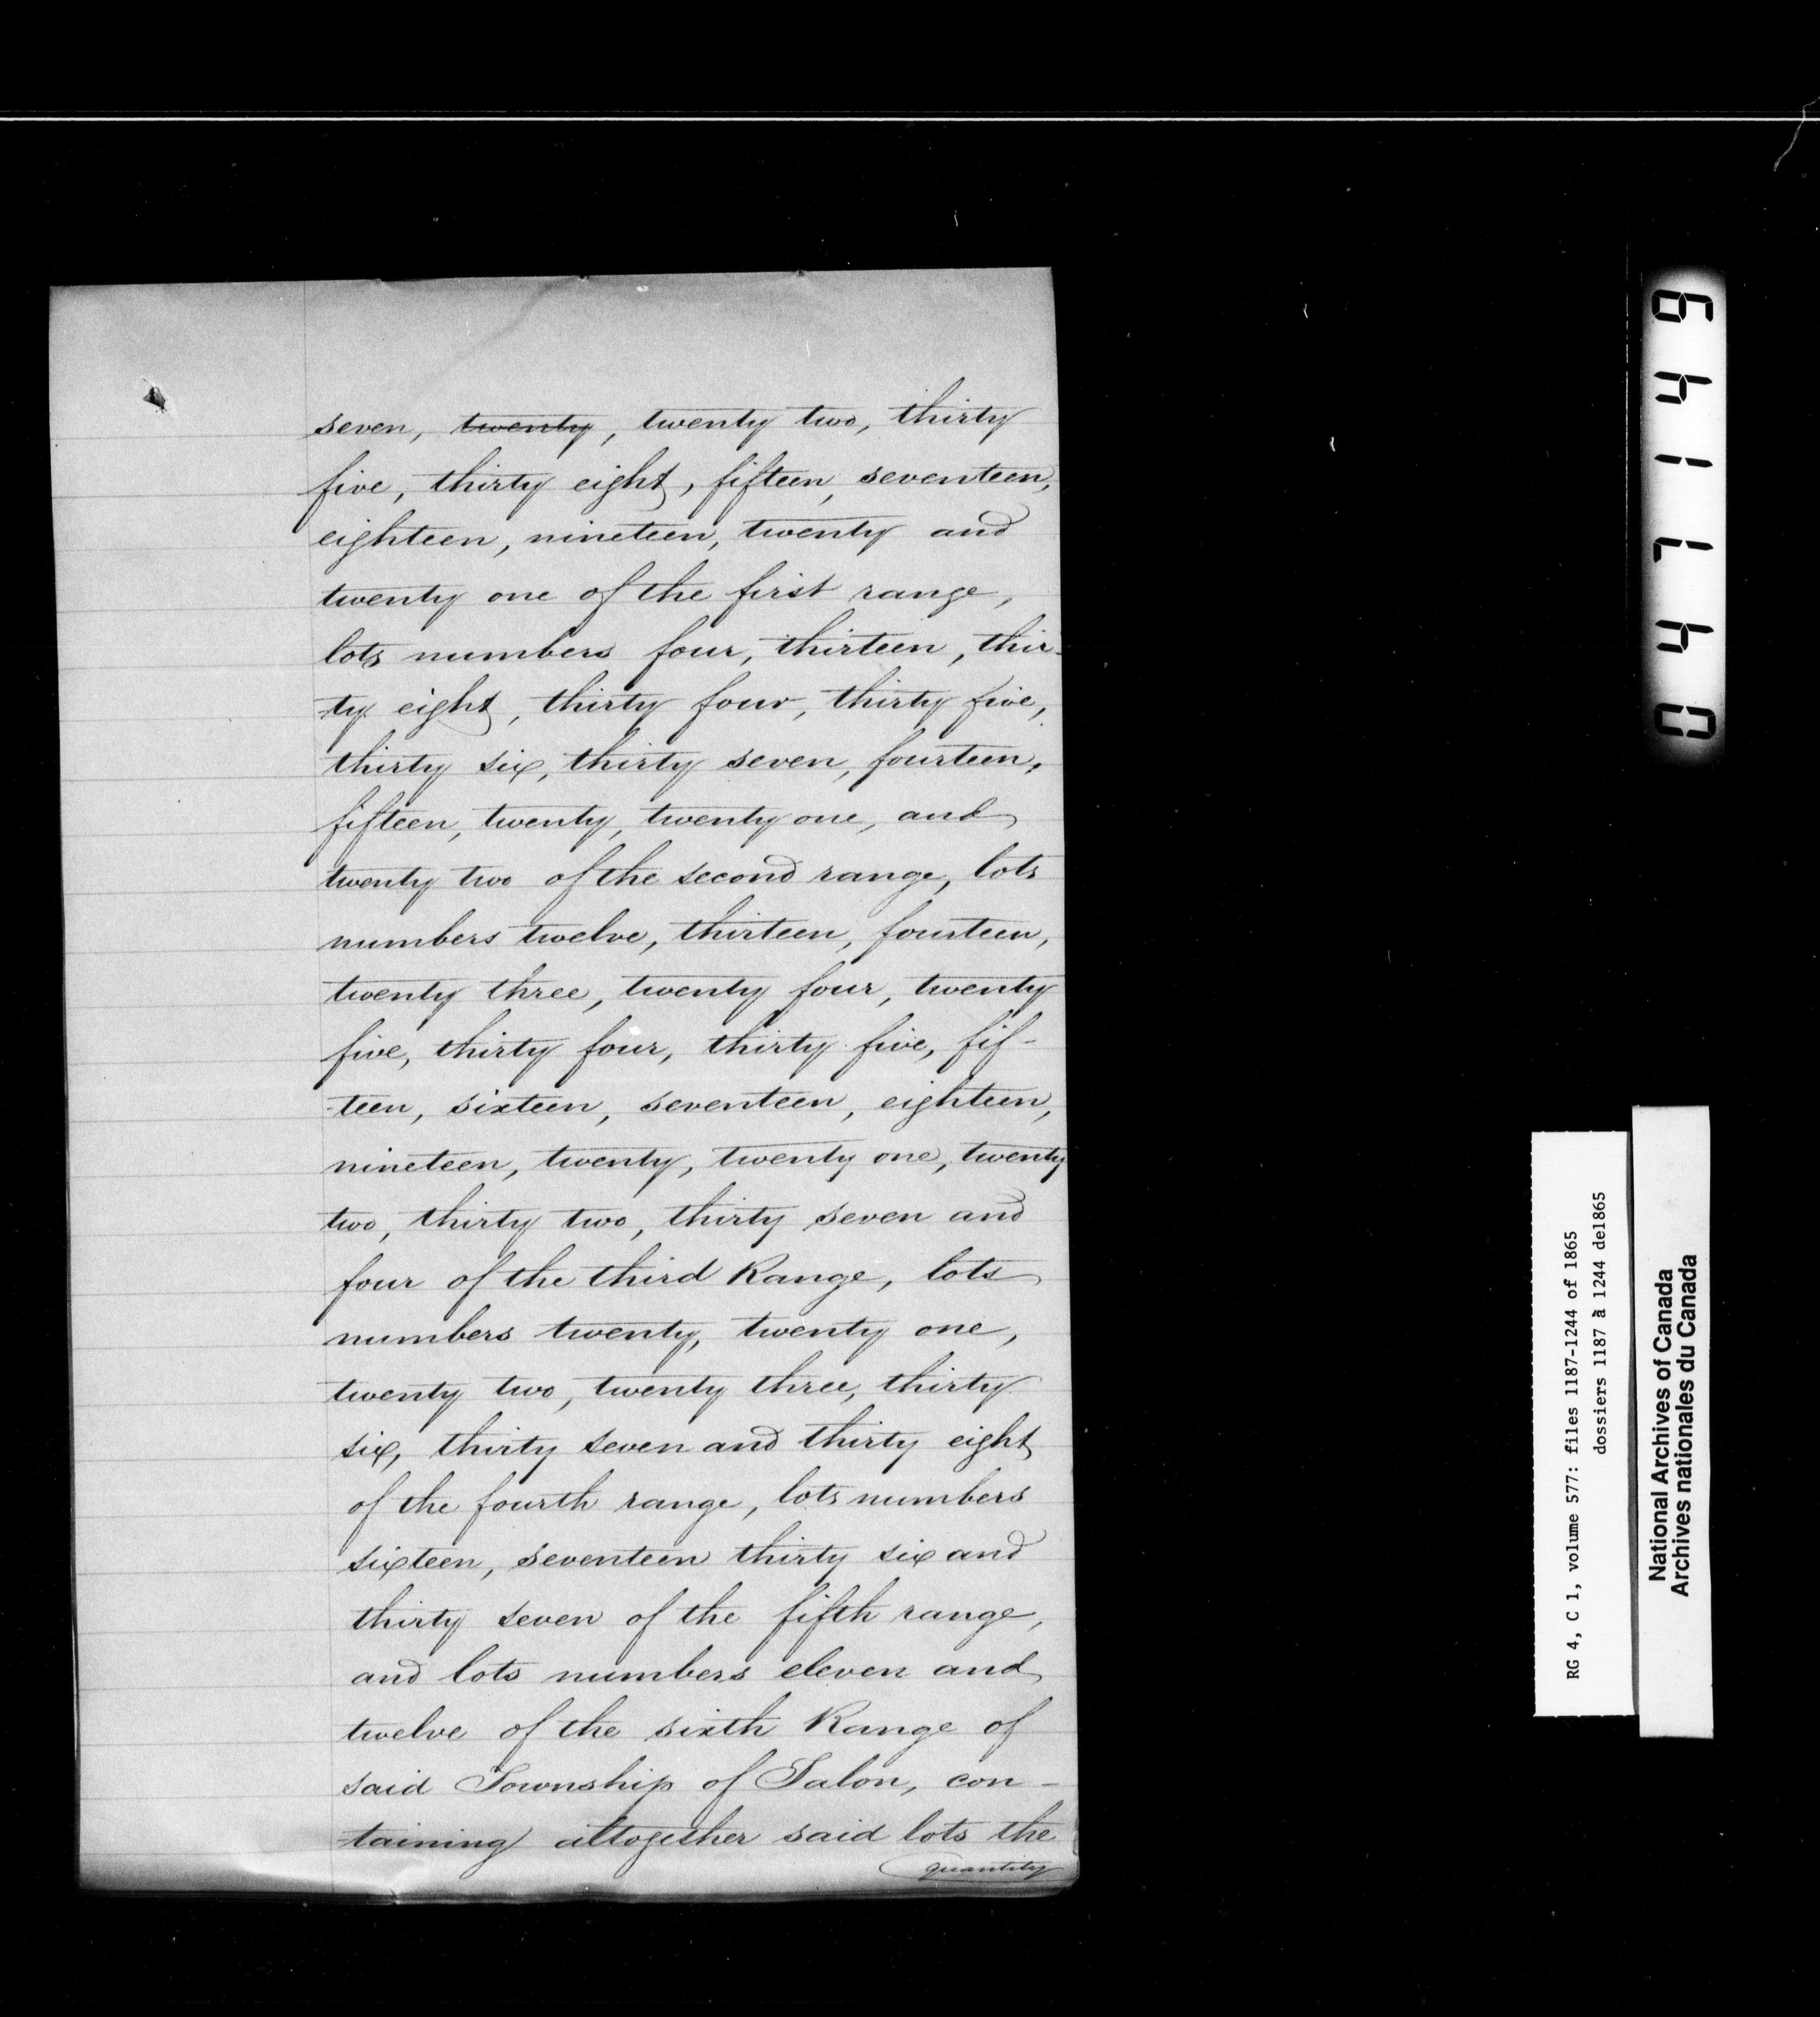 seven, twenty, twenty two, thirty
five, thirty eight, fifteen, seventeen,
eighteen, nineteen, twenty and
twenty one of the first range,
lots numbers four, thirteen, thir-
ty eight, thirty four, thirty five,
thirty six, thirty seven, fourteen,
fifteen, twenty, twenty one, and
twenty two of the second range, lots
numbers twelve, thirteen, fourteen,
twenty three, twenty four, twenty
five, thirty four, thirty five, fif-
-teen, sixteen, seventeen, eighteen,
nineteen, twenty, twenty one, twenty
two, thirty two, thirty seven and
four of the third Range, lots
numbers twenty, twenty one,
twenty two, twenty three, thirty
six, thirty seven and thirty eight
of the fourth range, lots numbers
sixteen, seventeen thirty six and
thirty seven of the fifth range,
and lots numbers eleven and
twelve of the sixth Range of
said Township of Talon, con-
taining altogether said lots the
quantity
047149
RG 4, C 1, volume 577: files 1187-1244 of 1865
dossiers 1187 à 1244 de1865
National Archives of Canada
Archives nationales du Canada